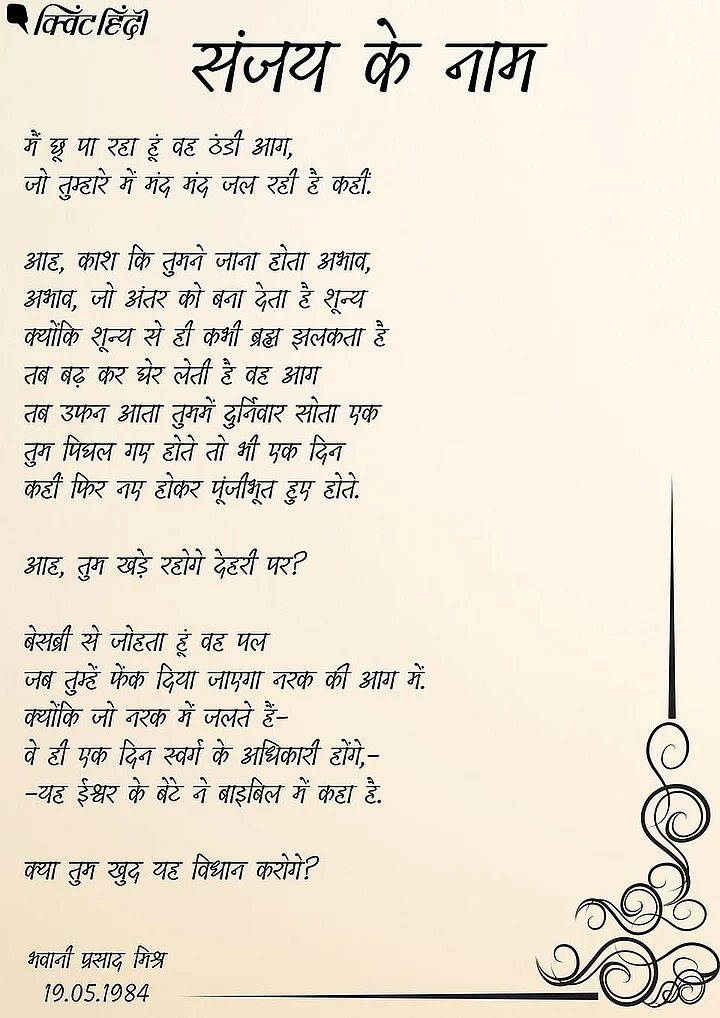 क्विंट हिंदी
संजय के नाम
मैं छू पा रहा हूं वह ठंडी आग,
जो तुम्हारे में मंद मंद जल रही है कहीं.
आह, काश कि तुमने जाना होता अभाव,
अभाव, जो अंतर को बना देता है शून्य
क्योंकि शून्य से ही कभी ब्रह्म झलकता है
तब बढ़ कर घेर लेती है वह आग
तब उफन आता तुममें दुर्निवार सोता एक
तुम पिघल गए होते तो भी एक दिन
कहीं फिर नए होकर पूंजीभूत हुए होते.
आह, तुम खड़े रहोगे देहरी पर?
बेसब्री से जोहता हूं वह पल
जब तुम्हें फेंक दिया जाएगा नरक की आग में.
क्योंकि जो नरक में जलते हैं-
वे ही एक दिन स्वर्ग के अधिकारी होंगे,-
-यह ईश्वर के बेटे ने बाइबिल में कहा है.
क्या तुम खुद यह विधान करोगे?
भवानी प्रसाद मिश्र
19.05.1984